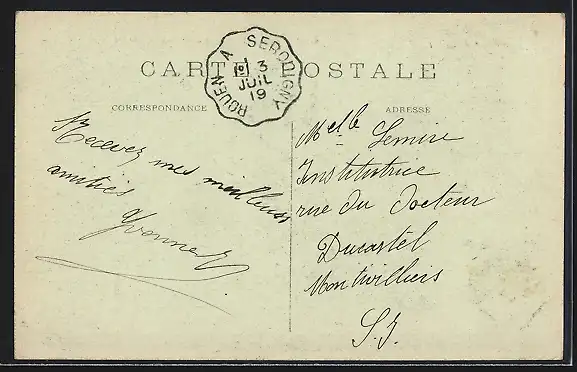 CARTE POSTALE
ROUEN A SERQUIGNY
13
JUIL
19
CORRESPONDANCE
ADRESSE
Recevez mes meilleures
amitiés
Yvonne
Melle Lemire
Institutrice
rue du Docteur
Ducastel
Montivilliers
S. I.